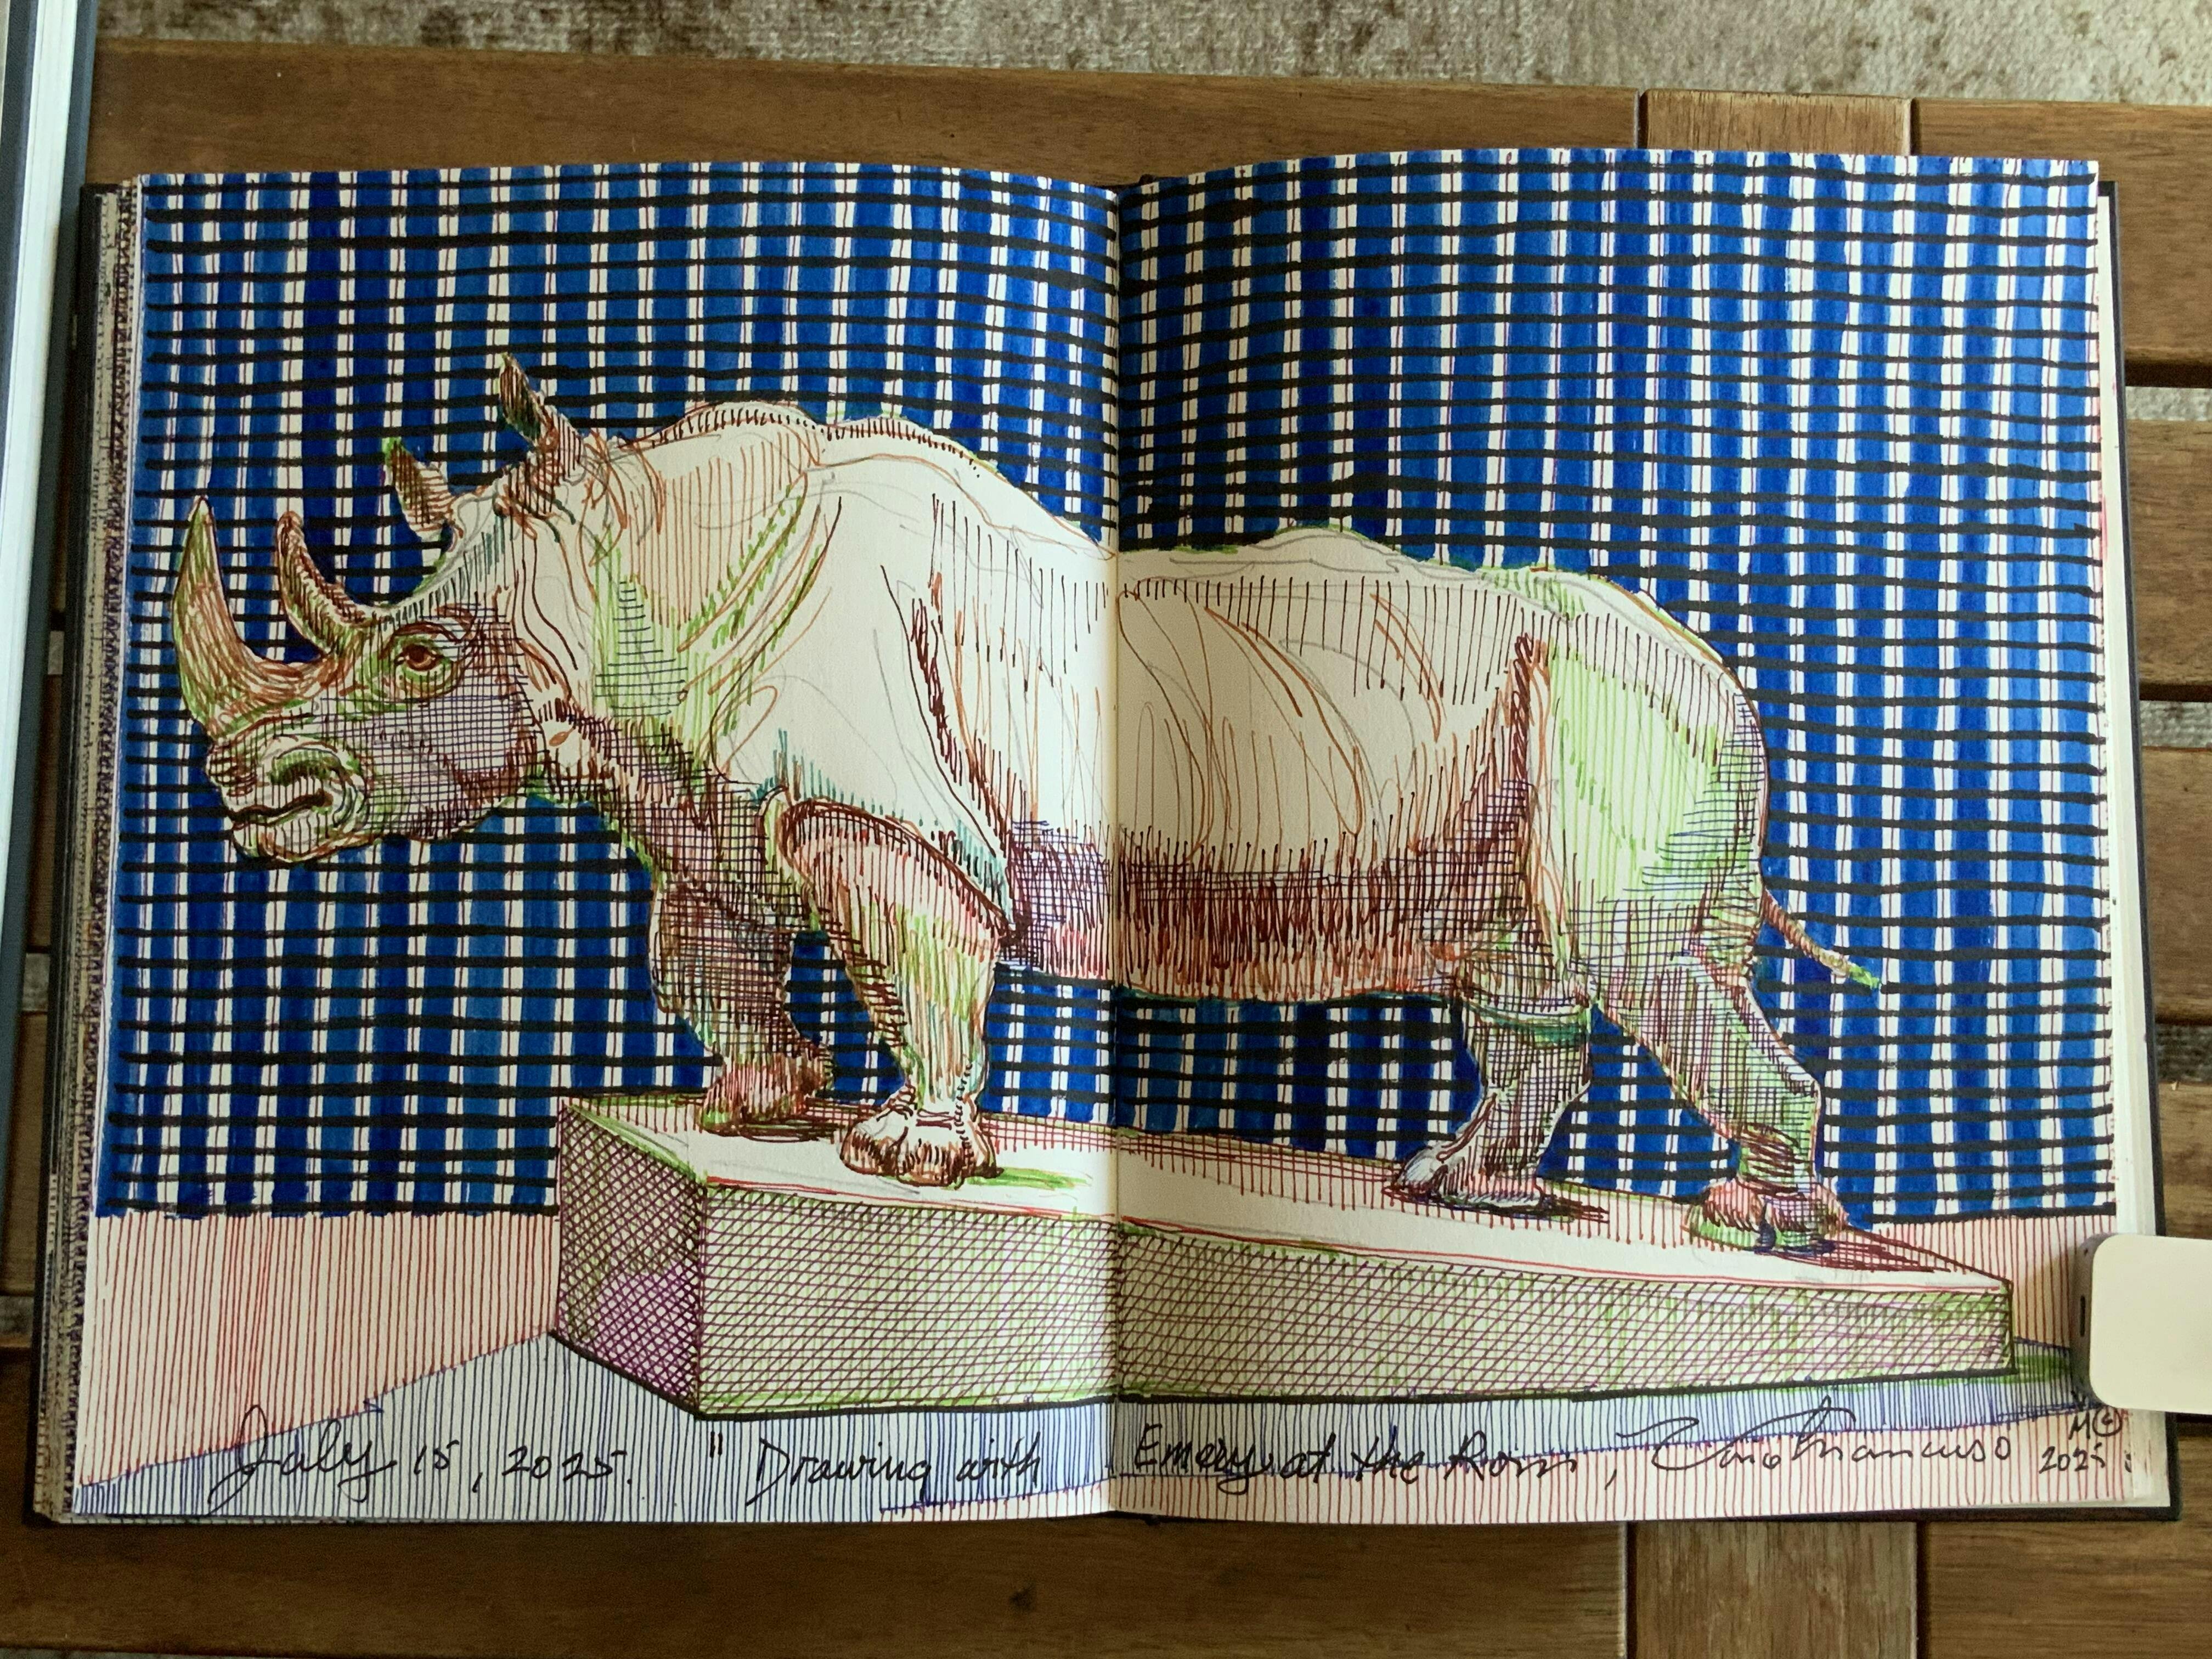 July 15, 2025. " Drawing with Emery at the Rom, Mancuso
M©
2025